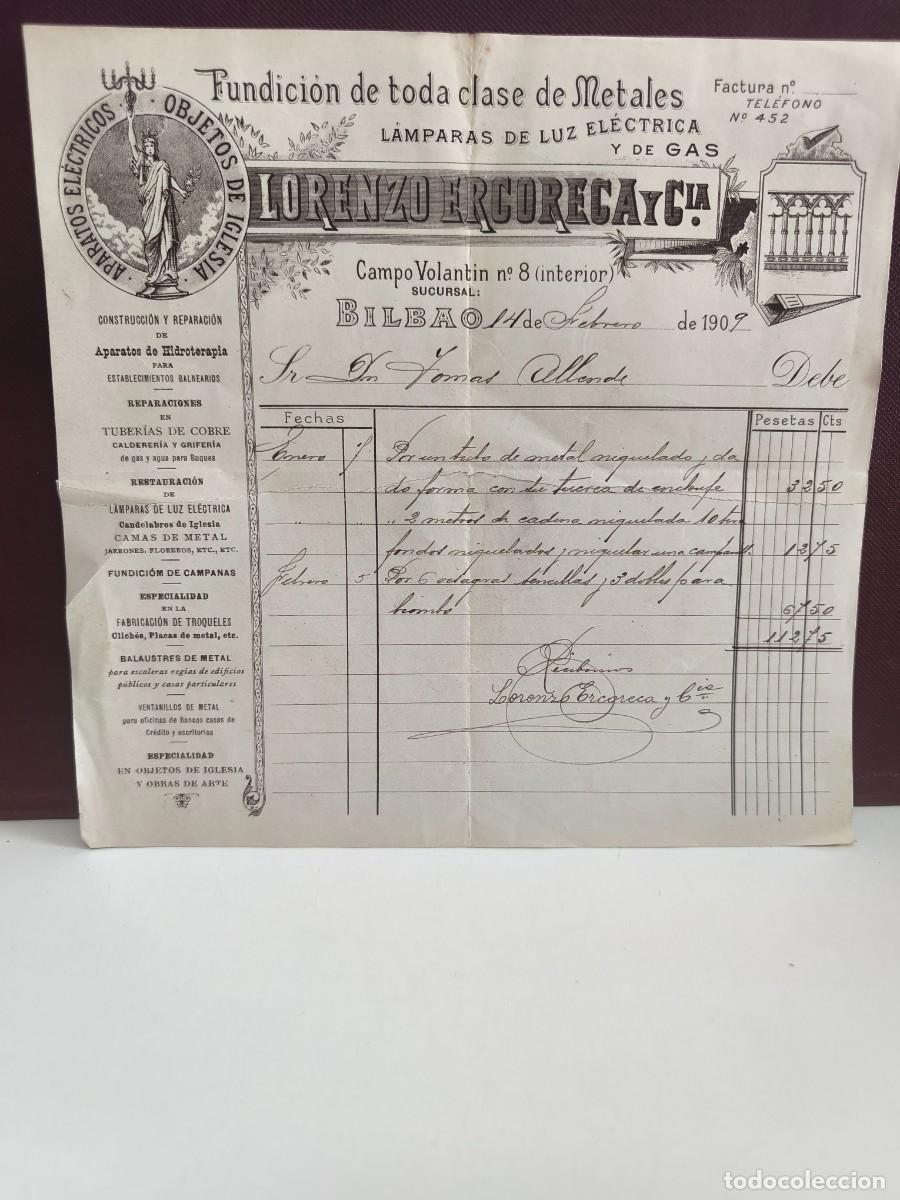 Fundición de toda clase de Metales
LÁMPARAS DE LUZ ELÉCTRICA
Y DE GAS
Factura nº
TELÉFONO
Nº 452
APARATOS ELÉCTRICOS · OBJETOS DE IGLESIA
LORENZO ERCORECA Y CIA.
Campo Volantin nº 8 (interior)
SUCURSAL:
BILBAO 14 de Febrero de 1909
Sr Dn Tomas Allende Debe
CONSTRUCCIÓN Y REPARACIÓN
DE
Aparatos de Hidroterapia
PARA
ESTABLECIMIENTOS BALNEARIOS
REPARACIONES
EN
TUBERÍAS DE COBRE
CALDERERÍA Y GRIFERÍA
de gas y agua para Buques
RESTAURACIÓN
DE
LÁMPARAS DE LUZ ELÉCTRICA
Candelabros de Iglesia
CAMAS DE METAL
JARRONES, FLOREROS, ETC., ETC.
FUNDICIÓM DE CAMPANAS
ESPECIALIDAD
EN LA
FABRICACIÓN DE TROQUELES
Clichés, Placas de metal, etc.
BALAUSTRES DE METAL
para escaleras regias de edificios
públicos y casas particulares
VENTANILLOS DE METAL
para oficinas de Bancos casas de
Crédito y escritorios
ESPECIALIDAD
EN OBJETOS DE IGLESIA
Y OBRAS DE ARTE
Fechas Pesetas Cts
Enero Por un tubo de metal niquelado y da
do forma con su tuerca de enchufe 32 50
" " " 2 metros de cadena niquelada 10
fondos niquelados y niquelar una 12 75
Febrero 5 Por 6 visagras sencillas y 3 dobles para
biombo 67 50
112 75
Recibimos
Lorenzo Ercoreca y Cia
todocoleccion